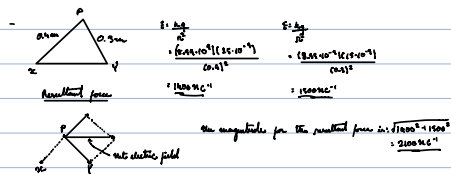 P
0.4m
0.3m
x
Y
E = kq / r²
= (8.99·10⁹)(25·10⁻⁹) / (0.4)²
= 1400 NC⁻¹
E = kq / r²
= (8.99·10⁻⁹)(15·10⁻⁹) / (0.3)²
= 1500NC⁻¹
Resultant force
P
net electric field
x
Y
The magnitude for the resultant force is: √1400² + 1500²
= 2100NC⁻¹